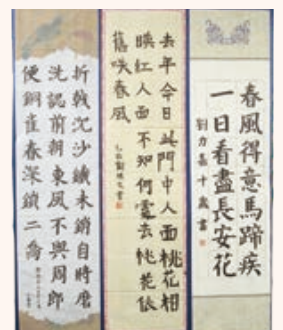 春風得意馬蹄疾
一日看盡長安花
去年今日此門中人面桃花相
映紅人面不知何處去桃花依
舊咲春風
折戟沉沙鐵未銷自將磨
洗認前朝東風不與周郎
便銅雀春深鎖二喬